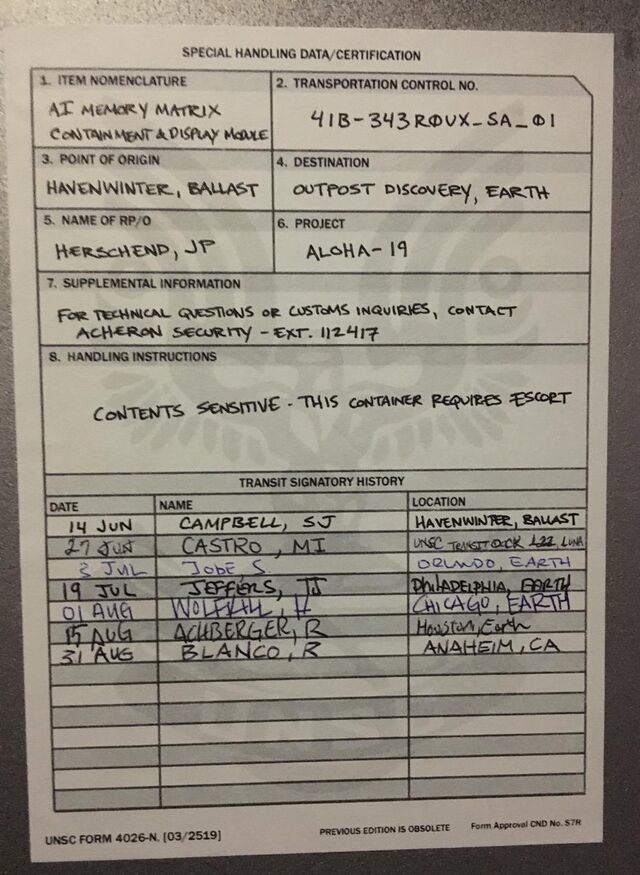 SPECIAL HANDLING DATA/CERTIFICATION
1. ITEM NOMENCLATURE
AI MEMORY MATRIX
CONTAINMENT & DISPLAY MODULE
2. TRANSPORTATION CONTROL NO.
41B-343RØUX_SA_Ø1
3. POINT OF ORIGIN
HAVENWINTER, BALLAST
4. DESTINATION
OUTPOST DISCOVERY, EARTH
5. NAME OF RP/O
HERSCHEND, JP
6. PROJECT
ALOHA-19
7. SUPPLEMENTAL INFORMATION
FOR TECHNICAL QUESTIONS OR CUSTOMS INQUIRIES, CONTACT
ACHERON SECURITY - EXT. 112417
8. HANDLING INSTRUCTIONS
CONTENTS SENSITIVE - THIS CONTAINER REQUIRES ESCORT
TRANSIT SIGNATORY HISTORY
DATE NAME LOCATION
14 JUN CAMPBELL, SJ HAVENWINTER, BALLAST
27 JUN CASTRO, MI UNSC TRANSIT DOCK L22, LUNA
3 JUL JOBE S ORLANDO, EARTH
19 JUL JEFFERS, TJ PHILADELPHIA, EARTH
01 AUG H CHICAGO, EARTH
15 AUG ACHBERGER, R Houston, Earth
31 AUG BLANCO, R ANAHEIM, CA
UNSC FORM 4026-N. [03/2519]
PREVIOUS EDITION IS OBSOLETE
Form Approval CND No. S7R